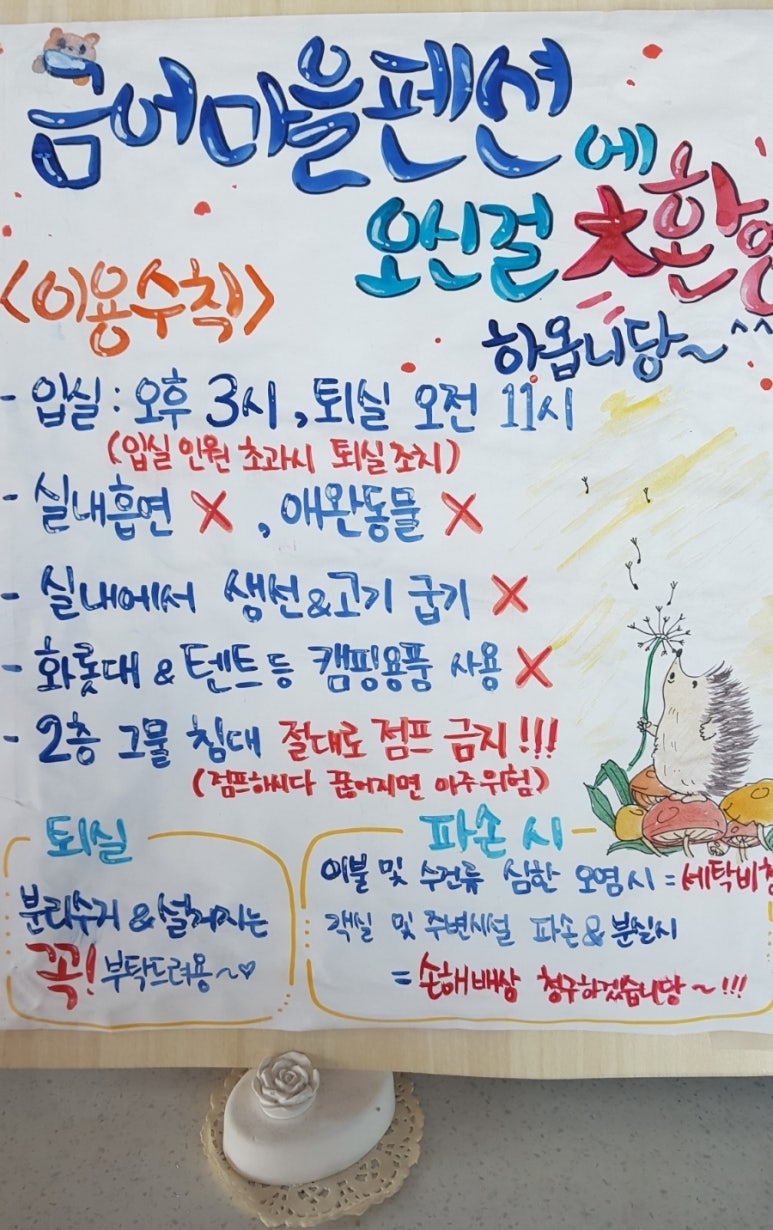 금어마을펜션에
오신걸 大환영
하옵니당~^^
<이용수칙>
- 입실 : 오후 3시, 퇴실 오전 11시
(입실 인원 초과시 퇴실 조치)
- 실내흡연 X, 애완동물 X
- 실내에서 생선&고기 굽기 X
- 화롯대 & 텐트 등 캠핑용품 사용 X
- 2층 그물 침대 절대로 점프 금지!!!
(점프하시다 끊어지면 아주위험)
퇴실
분리수거 & 설거지는
꼭! 부탁드려용~♡
파손 시
이불 및 수건류 심한 오염시 = 세탁비청
객실 및 주변시설 파손&분실시
= 손해배상 청구하겠습니당~!!!